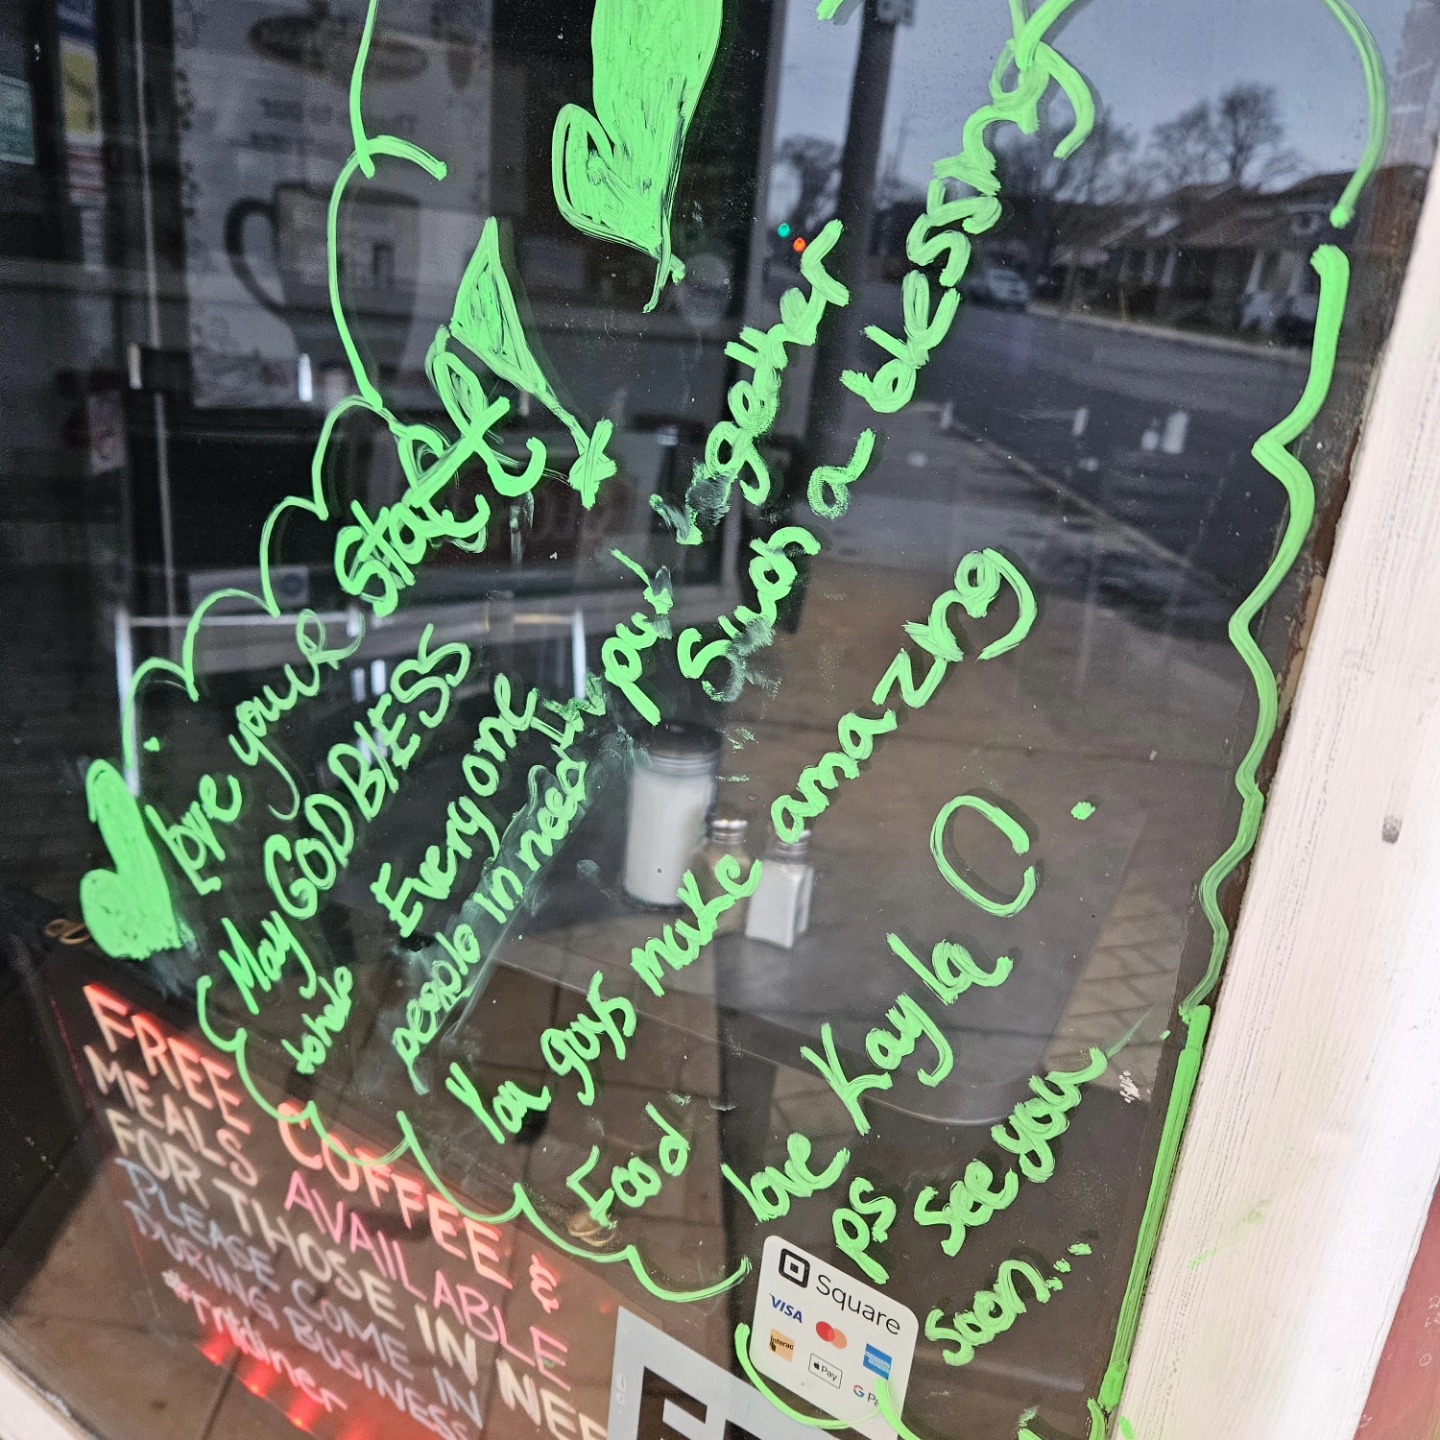 love your state
May GOD BlESS
Every one
people in need In put gether
Such a blessing
You guys make amazing
Food
love Kayla O.
ps see you
soon...
FREE COFFEE &
MEALS AVAILABLE
FOR THOSE IN NEE
PLEASE COME IN
DURING BUSINESS
Square
VISA
Interac
Pay
G Pa